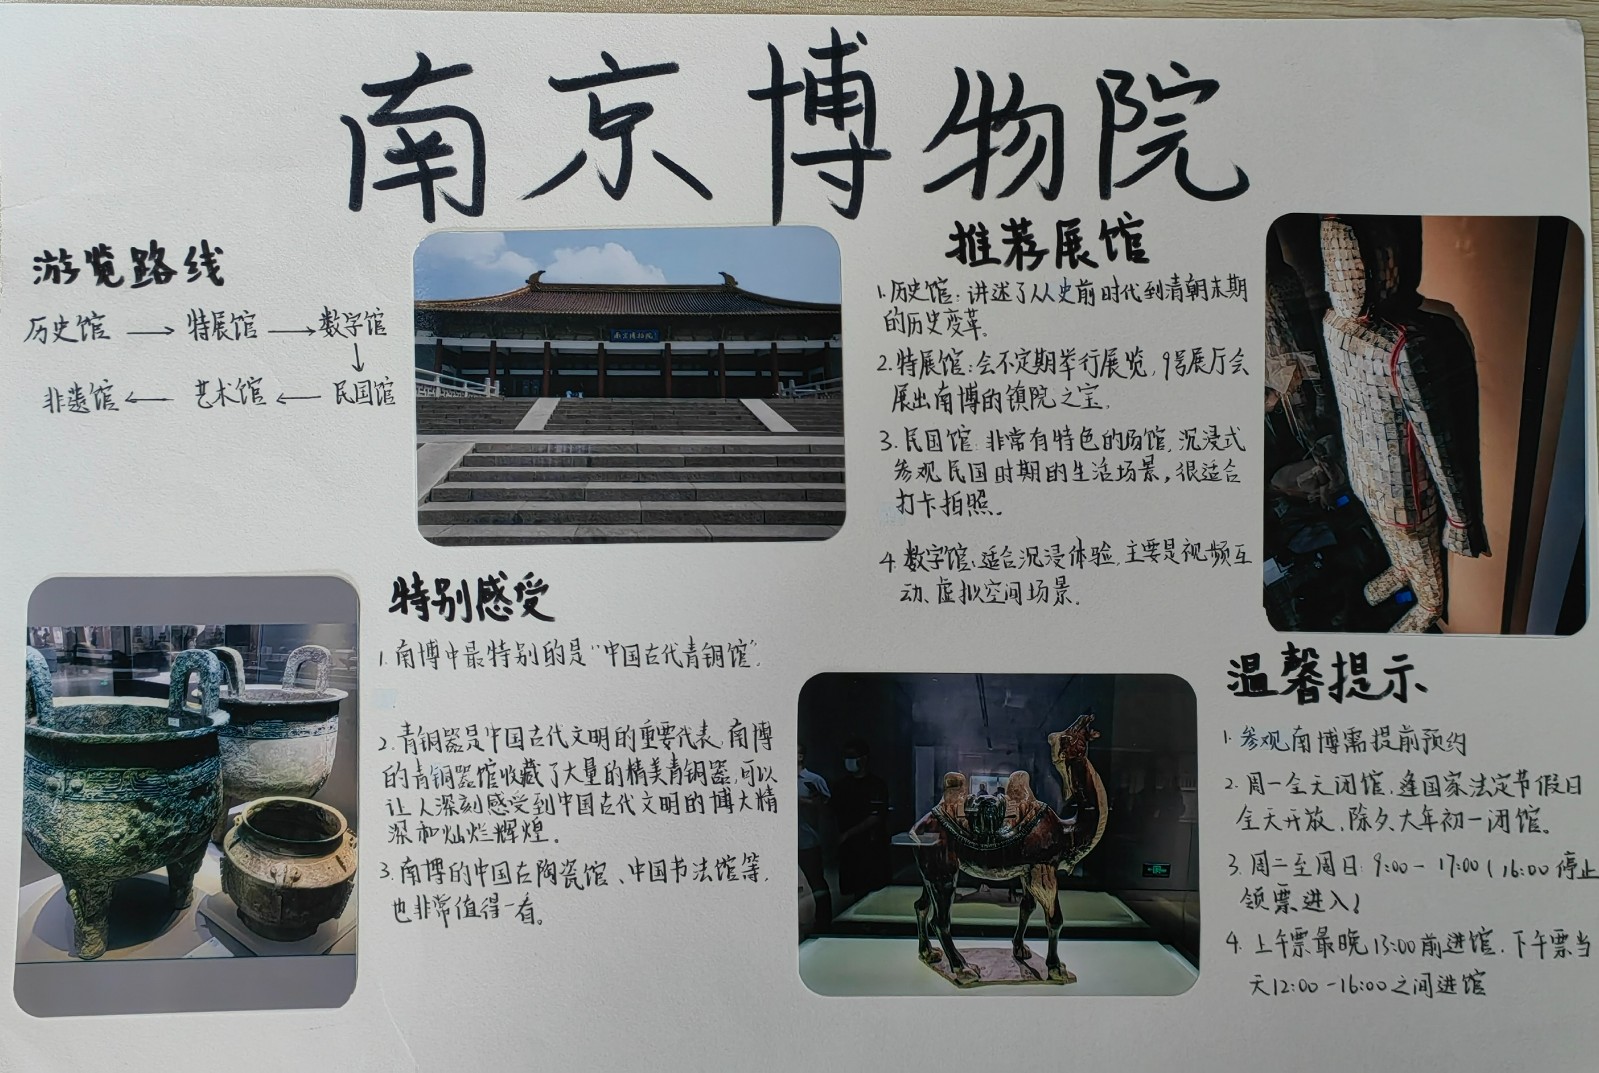 南京博物院
游览路线
历史馆 → 特展馆 → 数字馆
↓
非遗馆 ← 艺术馆 ← 民国馆
南京博物院
推荐展馆
1.历史馆：讲述了从史前时代到清朝末期
的历史变革。
2.特展馆：会不定期举行展览，9号展厅会
展出南博的镇院之宝。
3.民国馆：非常有特色的场馆，沉浸式
参观民国时期的生活场景，很适合
打卡拍照。
4.数字馆：适合沉浸体验，主要是视频互
动、虚拟空间场景。
特别感受
1.南博中最特别的是“中国古代青铜馆”。
2.青铜器是中国古代文明的重要代表，南博
的青铜器馆收藏了大量的精美青铜器，可以
让人深刻感受到中国古代文明的博大精
深和灿烂辉煌。
3.南博的中国古陶瓷馆、中国书法馆等，
也非常值得一看。
温馨提示
1.参观南博需提前预约
2.周一全天闭馆，逢国家法定节假日
全天开放，除夕、大年初一闭馆。
3.周二至周日：9:00-17:00（16:00停止
领票进入）
4.上午票最晚13:00前进馆，下午票当
天12:00-16:00之间进馆